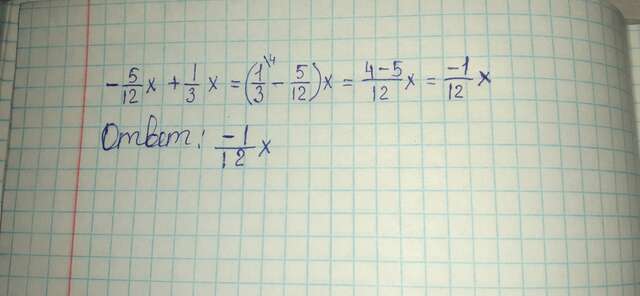 -5/12 x + 1/3 x = (1/3 \4 - 5/12) x = 4-5/12 x = -1/12 x
Ответ: -1/12 x